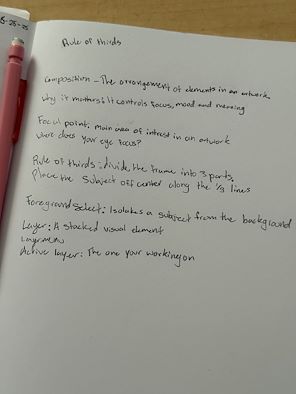 5-26-25
Rule of thirds
Composition - The arrangement of elements in an artwork
Why it matters: It controls focus, mood and meaning
Focal point: main area of intrest in an artwork
where does your eye focus?
Rule of thirds: divide the frame into 3 parts,
Place the subject off center along the 1/3 lines
Foreground Select: Isolates a subject from the background
Layer: A stacked visual element
Layer menu
Active layer: The one your working on